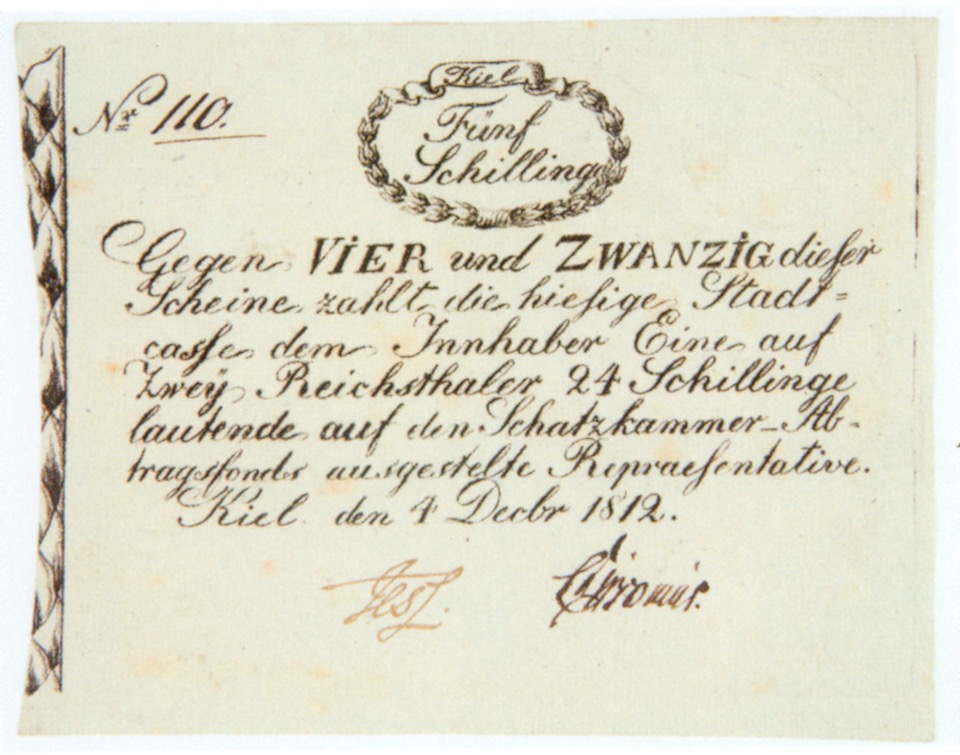 Kiel
Nr 110.
Fünf
Schillinge
Gegen VIER und ZWANZIG dieser
Scheine zahlt die hiesige Stadt=
casse dem Innhaber Eine auf
Zwey Reichsthaler 24 Schillinge
lautende auf den Schatzkammer-Ab-
tragsfonds ausgestelte Repraesentative.
Kiel den 4 Decbr 1812.